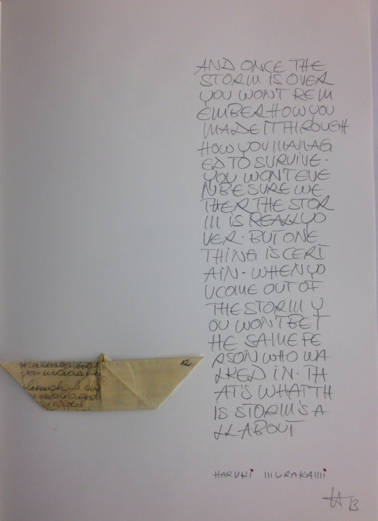 AND ONCE THE
STORM IS OVER
YOU WON'T REM
EMBER HOW YOU
MADE IT THROUGH
HOW YOU MANAG
ED TO SURVIVE.
YOU WON'T EVE
N BE SURE WE
THER THE STOR
M IS REALLY O
VER. BUT ONE
THING IS CERT
AIN. WHEN YO
U COME OUT OF
THE STORM Y
OU WON'T BE T
HE SAME PE
RSON WHO WA
LKED IN. TH
AT'S WHAT TH
IS STORM'S A
LL ABOUT
HARUKI MURAKAMI
13